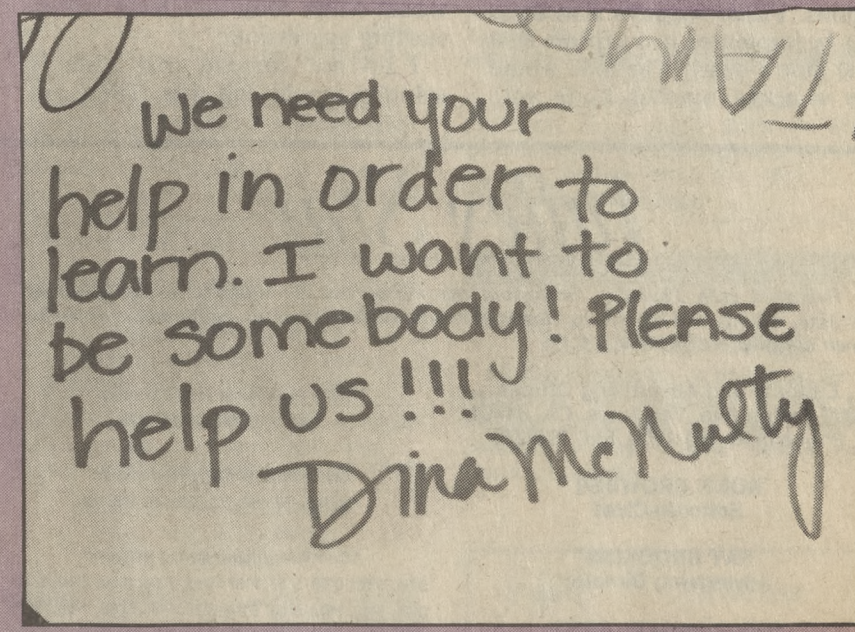 We need your
help in order to
learn. I want to
be somebody! PlEASE
help us!!!
Dina McNulty